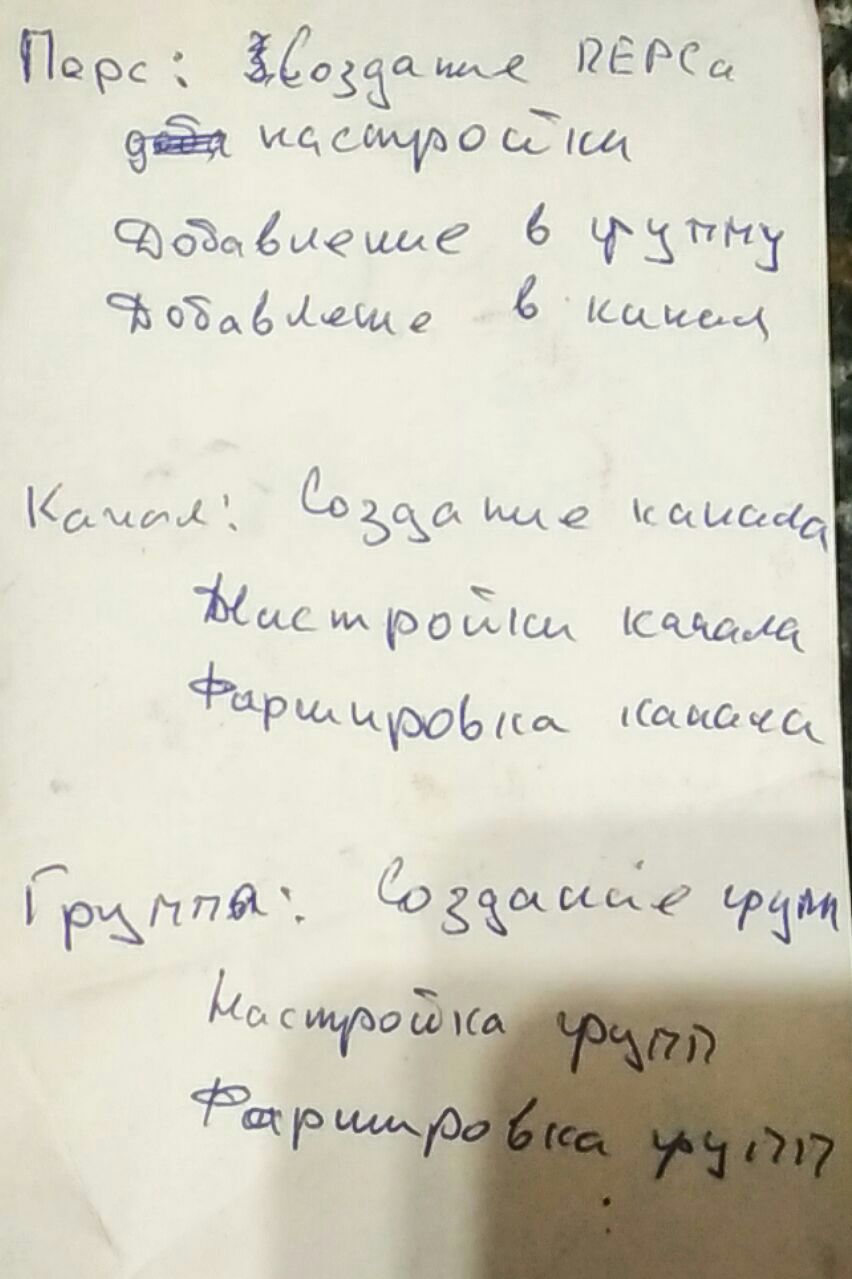 Перс: Создание ПЕРСа
настройки
Добавление в группу
Добавление в канал
Канал: Создание канала
Настройки канала
Фаршировка канала
Группы: Создание групп
Настройка групп
Фаршировка групп